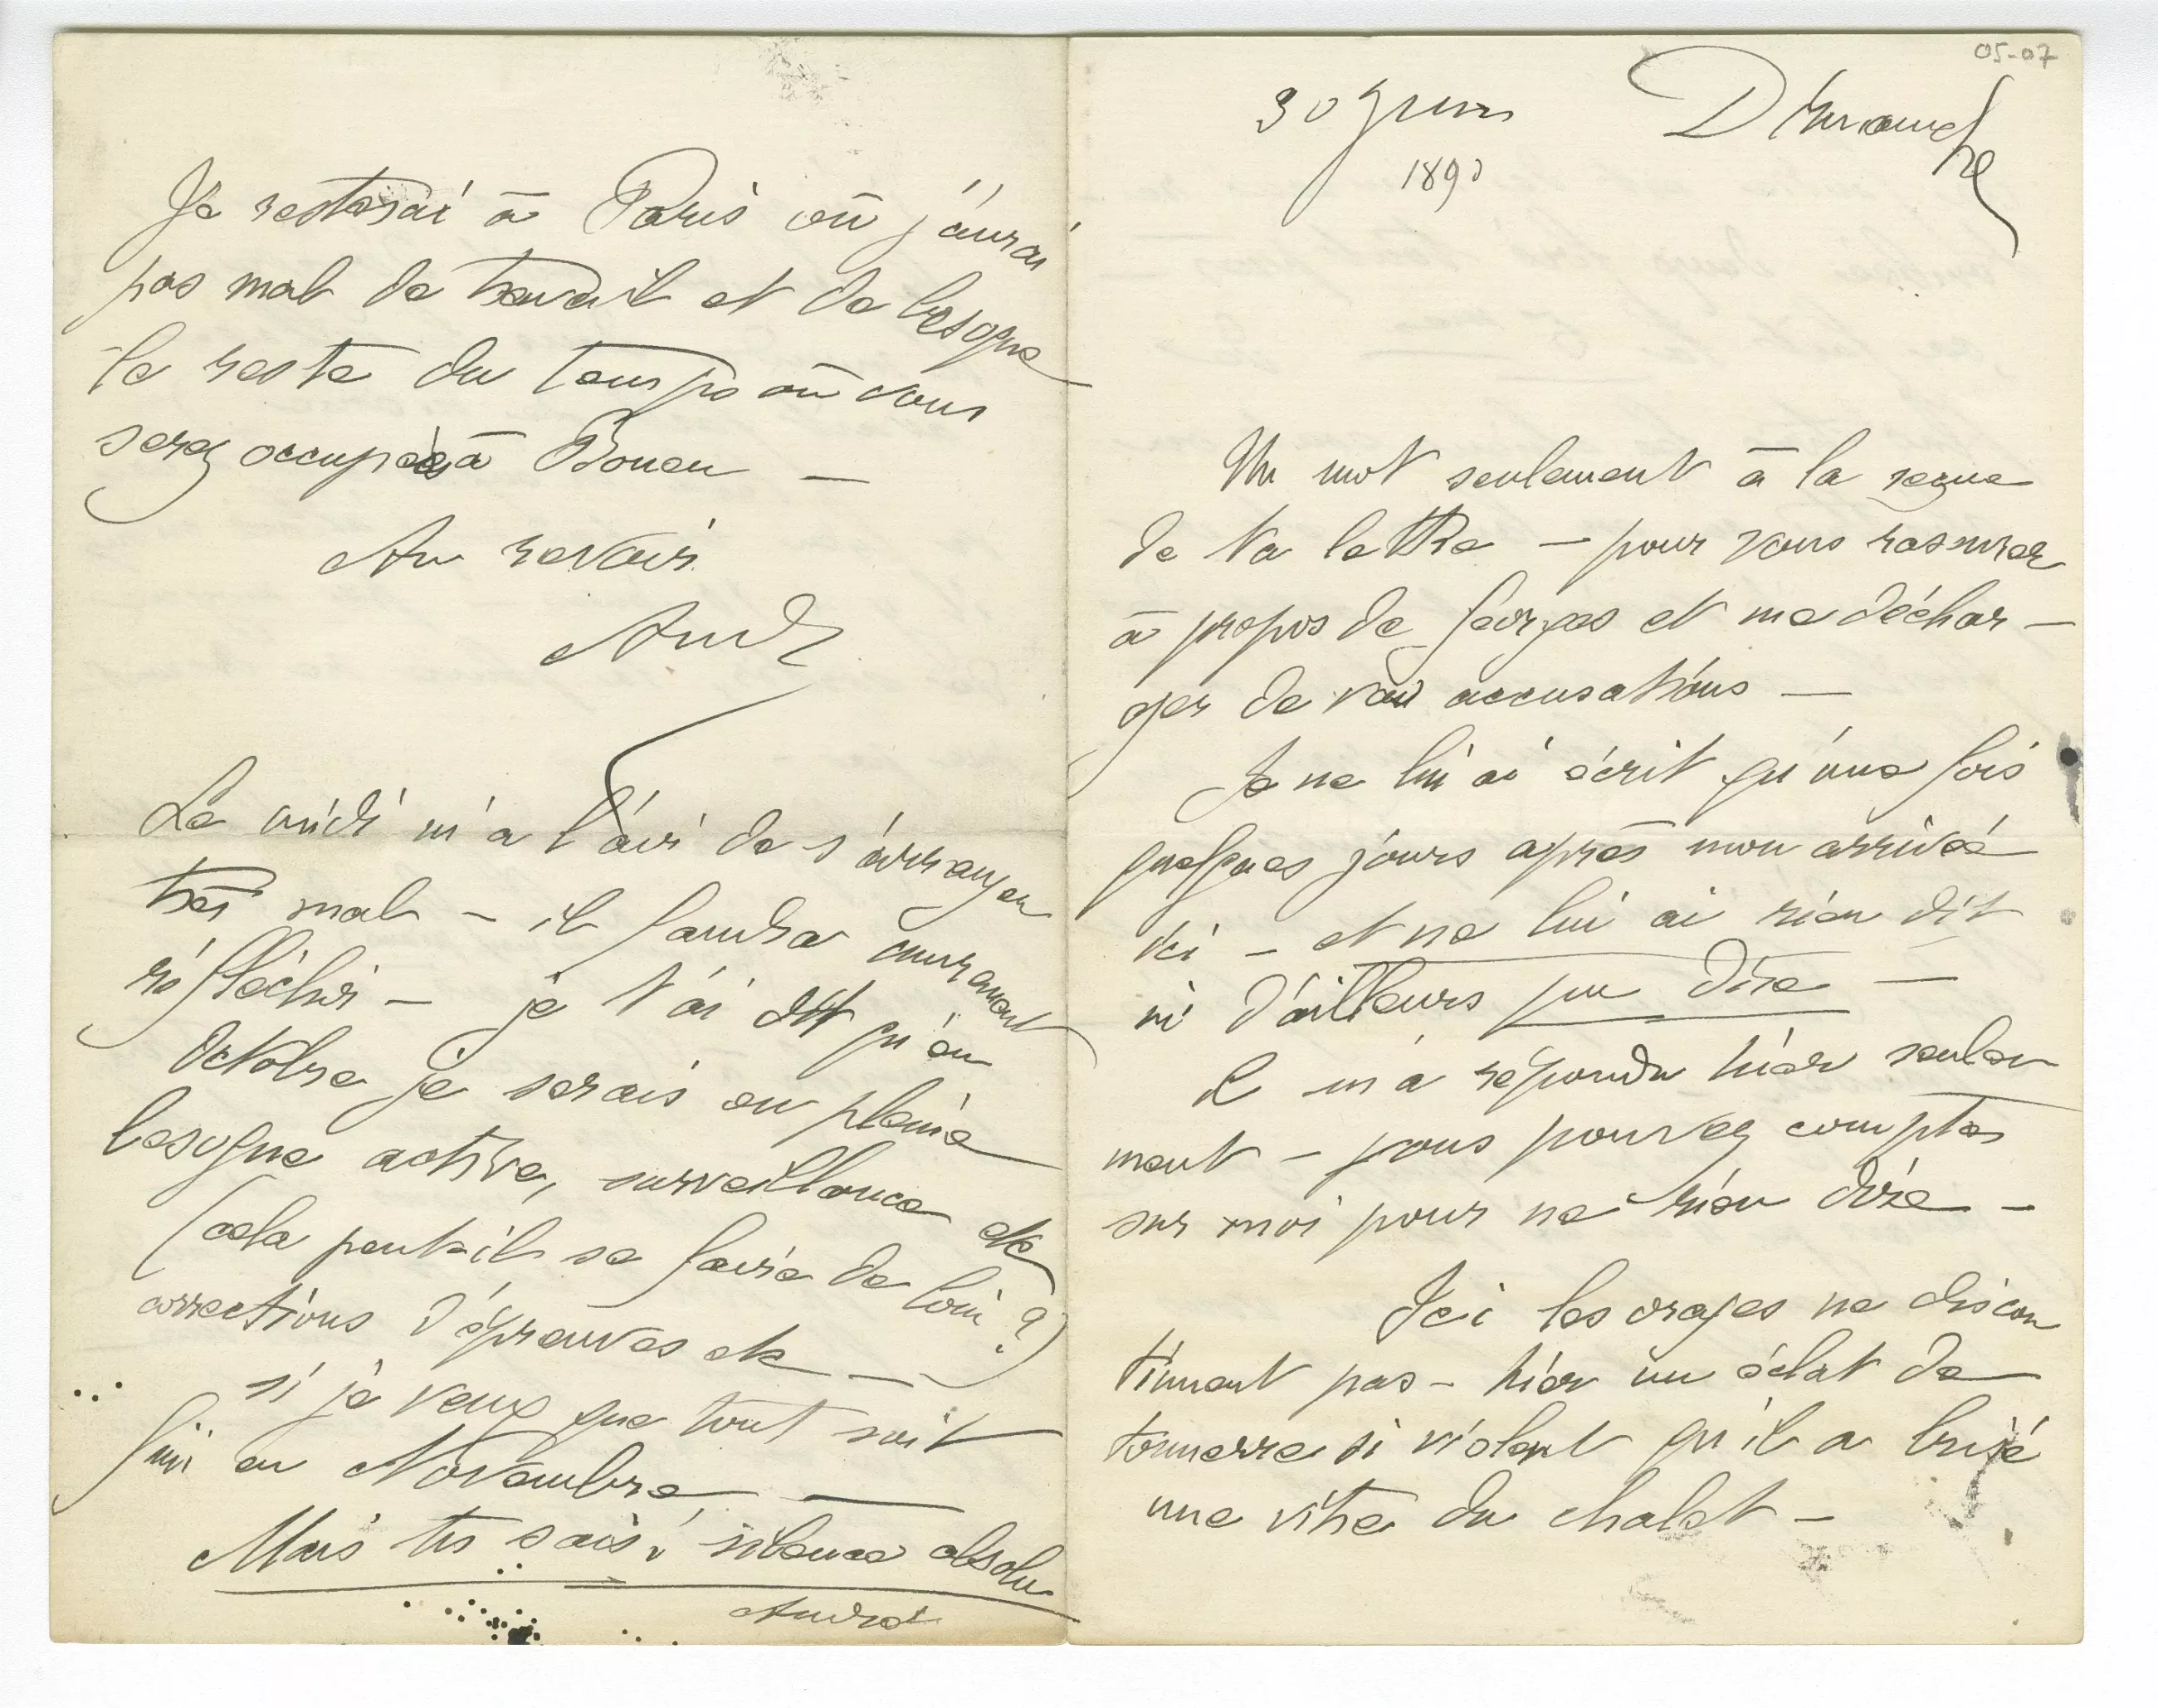 05-07
30 Juin Dimanche
1890
Un mot seulement à la reçue
de ta lettre — pour vous rassurer
à propos de Georges et me déchar-
ger de vos accusations —
Je ne lui ai écrit qu'une fois
quelques jours après mon arrivée
ici — et ne lui ai rien dit
ni d'ailleurs pu dire —
Il m'a répondu hier seule
ment — vous pouvez compter
sur moi pour ne rien dire —
Ici les orages ne discon
tinuent pas — hier un éclat de
tonnerre si violent qu'il a brisé
une vitre du chalet —
Je resterai à Paris où j'aurai
pas mal de travail et de besogne
le reste du temps où vous
serez occupées à Rouen —
Au revoir
André
Le midi m'a l'air de s'arranger
très mal — il faudra mûrement
réfléchir — je t'ai dit qu'en
Octobre je serais en pleine
besogne active, surveillance etc
(cela peut-il se faire de loin ?)
corrections d'épreuves etc —
si je veux que tout soit
fini en Novembre —
Mais tu sais, silence absolu
André